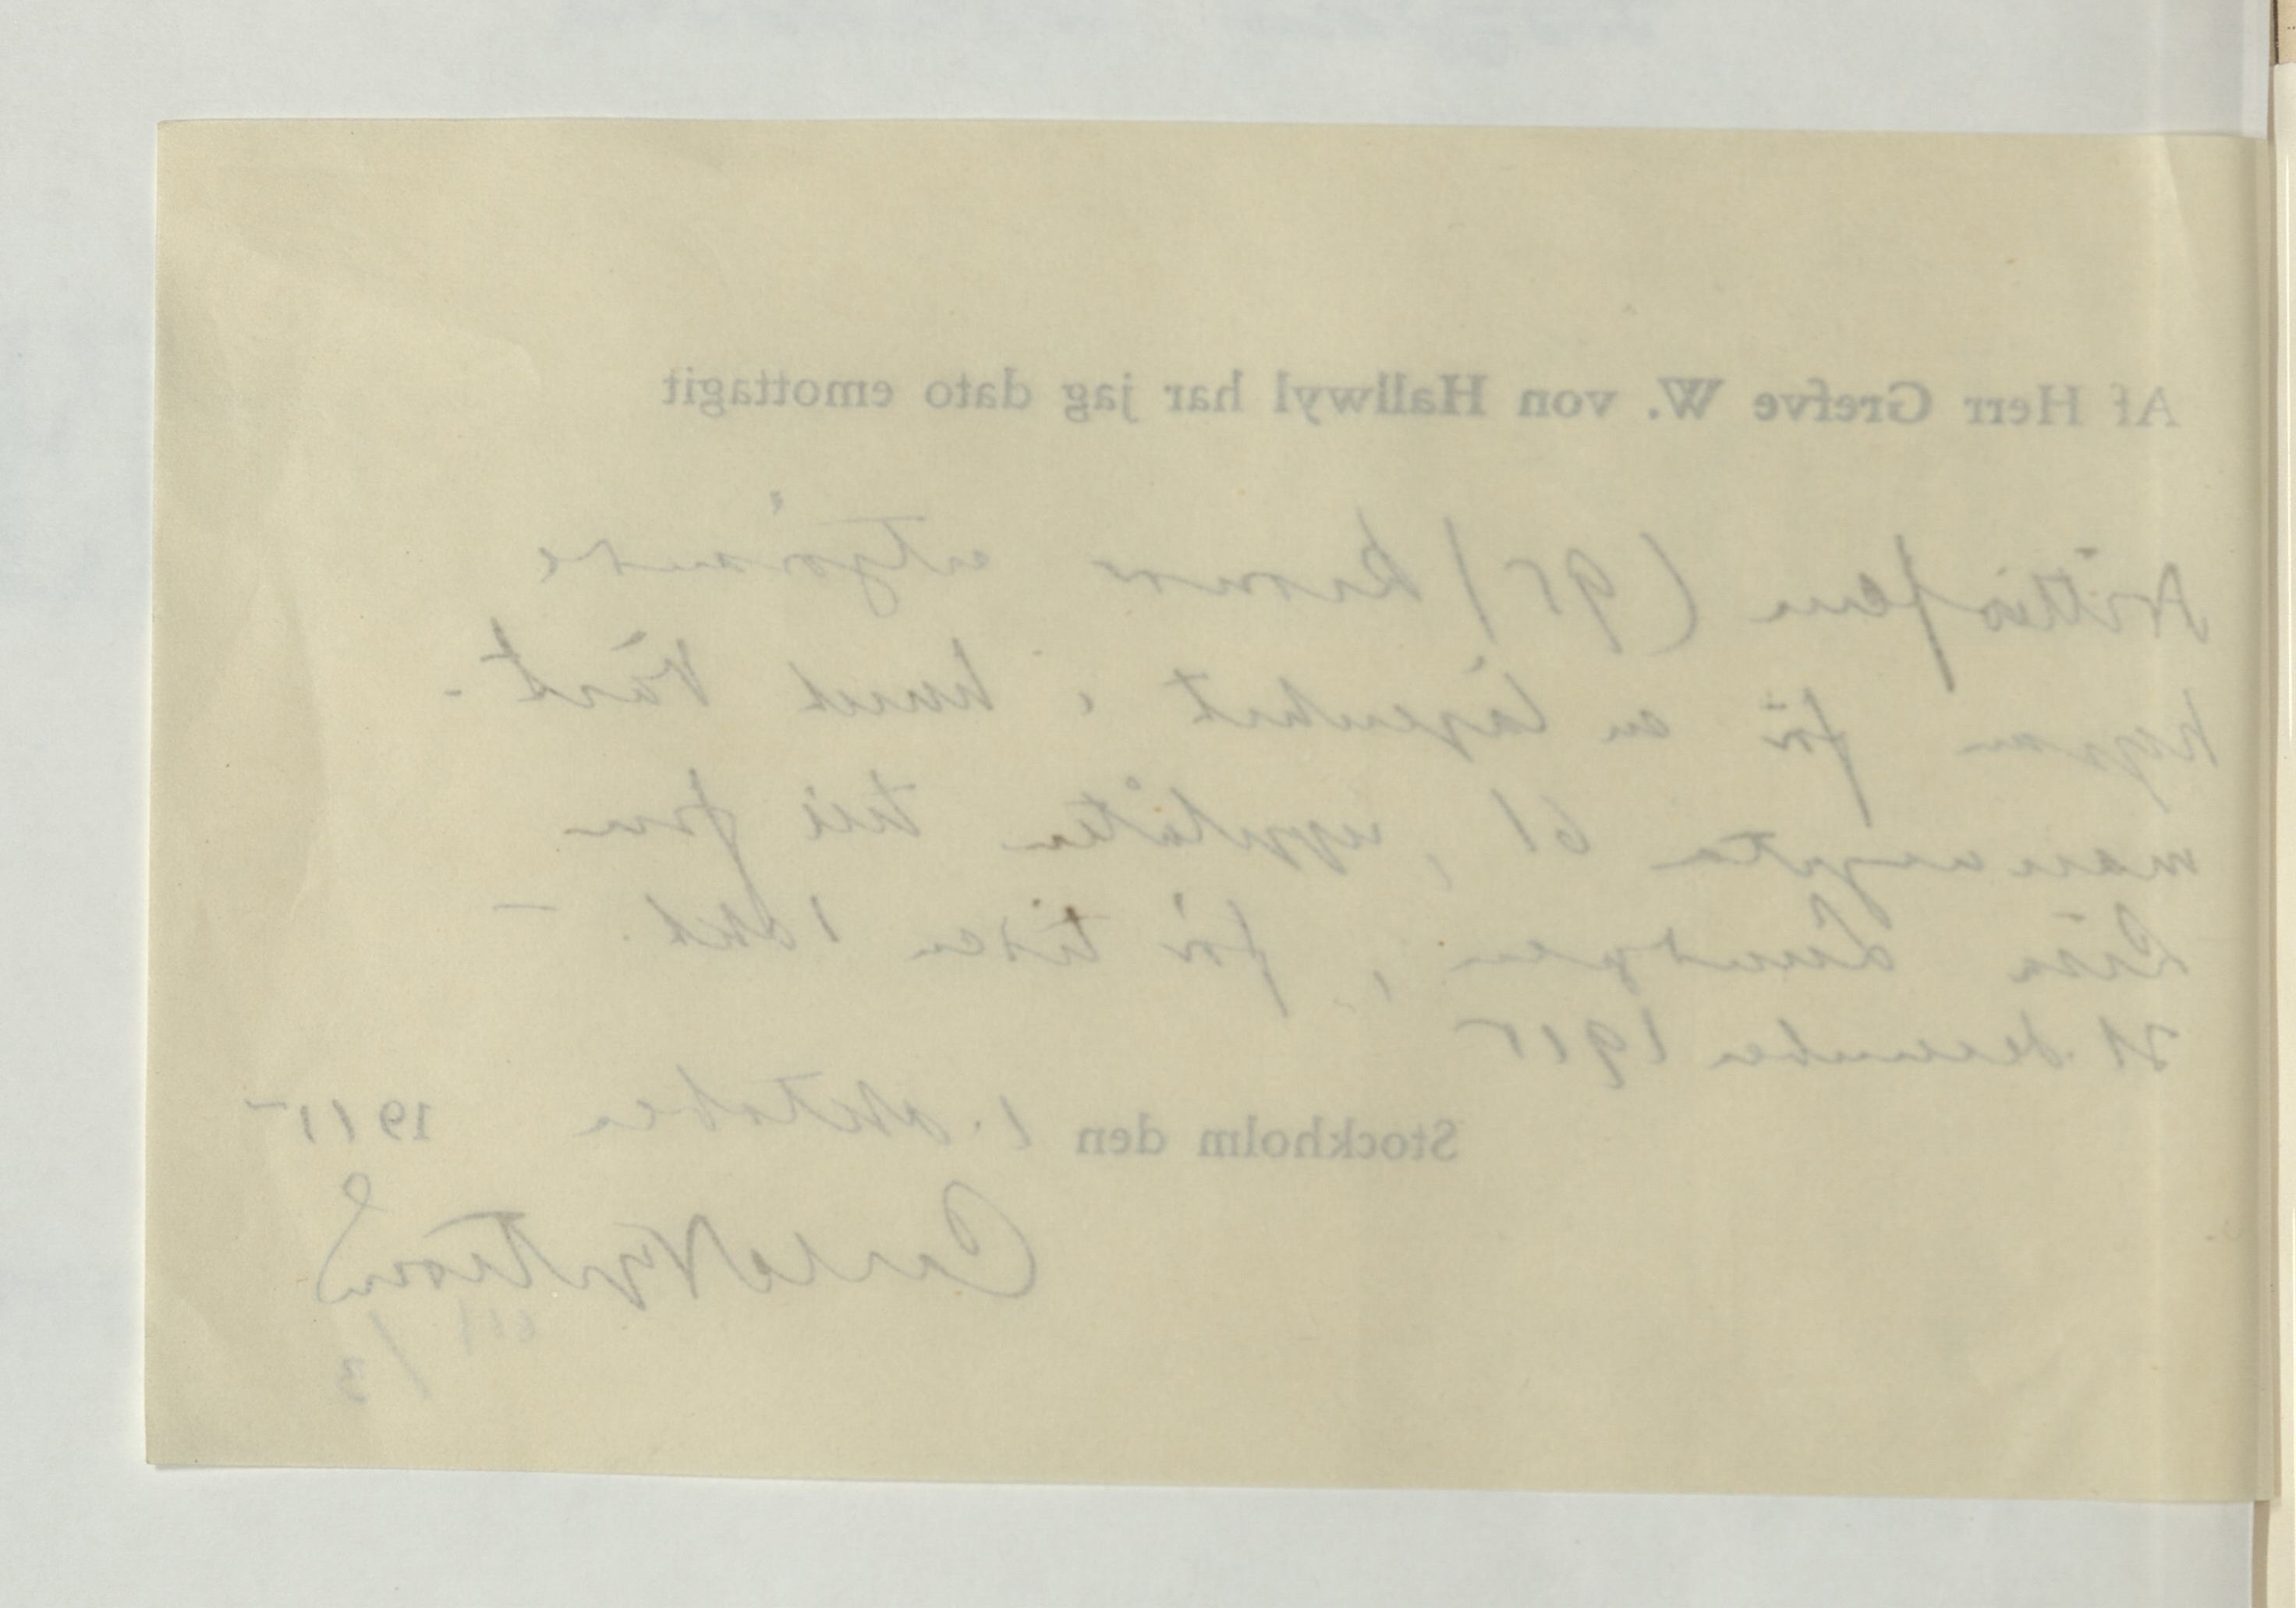 Af Herr Grefve W. von Hallwyl har jag dato emottagit
Nittiofem (95) kronor utgörande
hyran för en lägenhet i huset Värt-
manusgata 61, upplåten till fru
Lisa Lundgren, för tiden 1 okt. –
31 december 1915
Stockholm den 1. oktober 1915
Carl Nyström
/3